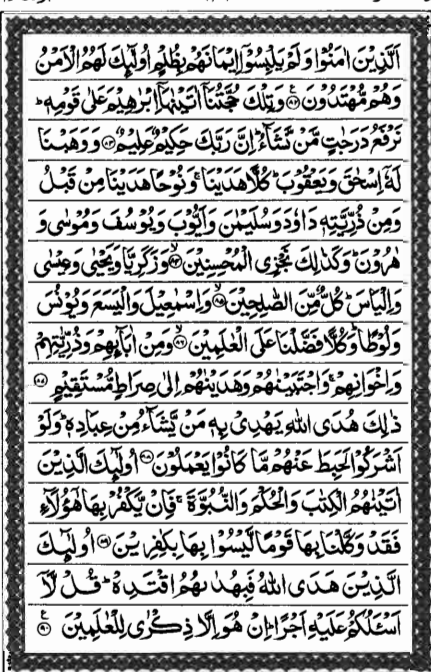 اَلَّذِيْنَ اٰمَنُوْا وَلَمْ يَلْبِسُوْۤا اِيْمَانَهُمْ بِظُلْمٍ اُولٰٓئِكَ لَهُمُ الْاَمْنُ
وَهُمْ مُّهْتَدُوْنَ ﴿۸۲﴾ وَتِلْكَ حُجَّتُنَاۤ اٰتَيْنٰهَاۤ اِبْرٰهِيْمَ عَلٰى قَوْمِهٖ ؕ
نَرْفَعُ دَرَجٰتٍ مَّنْ نَّشَآءُ ؕ اِنَّ رَبَّكَ حَكِيْمٌ عَلِيْمٌ ﴿۸۳﴾ وَوَهَبْنَا
لَهٗۤ اِسْحٰقَ وَيَعْقُوْبَ ؕ كُلًّا هَدَيْنَا ۚ وَنُوْحًا هَدَيْنَا مِنْ قَبْلُ
وَمِنْ ذُرِّيَّتِهٖ دَاوٗدَ وَسُلَيْمٰنَ وَاَيُّوْبَ وَيُوْسُفَ وَمُوْسٰى وَ
هٰرُوْنَ ؕ وَكَذٰلِكَ نَجْزِى الْمُحْسِنِيْنَ ﴿۸۴﴾ وَزَكَرِيَّا وَيَحْيٰى وَعِيْسٰى
وَاِلْيَاسَ ؕ كُلٌّ مِّنَ الصّٰلِحِيْنَ ﴿۸۵﴾ وَاِسْمٰعِيْلَ وَالْيَسَعَ وَيُوْنُسَ
وَلُوْطًا ؕ وَكُلًّا فَضَّلْنَا عَلَى الْعٰلَمِيْنَ ﴿۸۶﴾ وَمِنْ اٰبَآئِهِمْ وَذُرِّيّٰتِهِمْ
وَاِخْوَانِهِمْ ۚ وَاجْتَبَيْنٰهُمْ وَهَدَيْنٰهُمْ اِلٰى صِرَاطٍ مُّسْتَقِيْمٍ ﴿۸۷﴾
ذٰلِكَ هُدَى اللّٰهِ يَهْدِىْ بِهٖ مَنْ يَّشَآءُ مِنْ عِبَادِهٖ ؕ وَلَوْ
اَشْرَكُوْا لَحَبِطَ عَنْهُمْ مَّا كَانُوْا يَعْمَلُوْنَ ﴿۸۸﴾ اُولٰٓئِكَ الَّذِيْنَ
اٰتَيْنٰهُمُ الْكِتٰبَ وَالْحُكْمَ وَالنُّبُوَّةَ ۚ فَاِنْ يَّكْفُرْ بِهَا هٰۤؤُلَآءِ
فَقَدْ وَكَّلْنَا بِهَا قَوْمًا لَّيْسُوْا بِهَا بِكٰفِرِيْنَ ﴿۸۹﴾ اُولٰٓئِكَ
الَّذِيْنَ هَدَى اللّٰهُ فَبِهُدٰىهُمُ اقْتَدِهْ ؕ قُلْ لَّاۤ
اَسْـَٔلُكُمْ عَلَيْهِ اَجْرًا ؕ اِنْ هُوَ اِلَّا ذِكْرٰى لِلْعٰلَمِيْنَ ﴿۹۰﴾